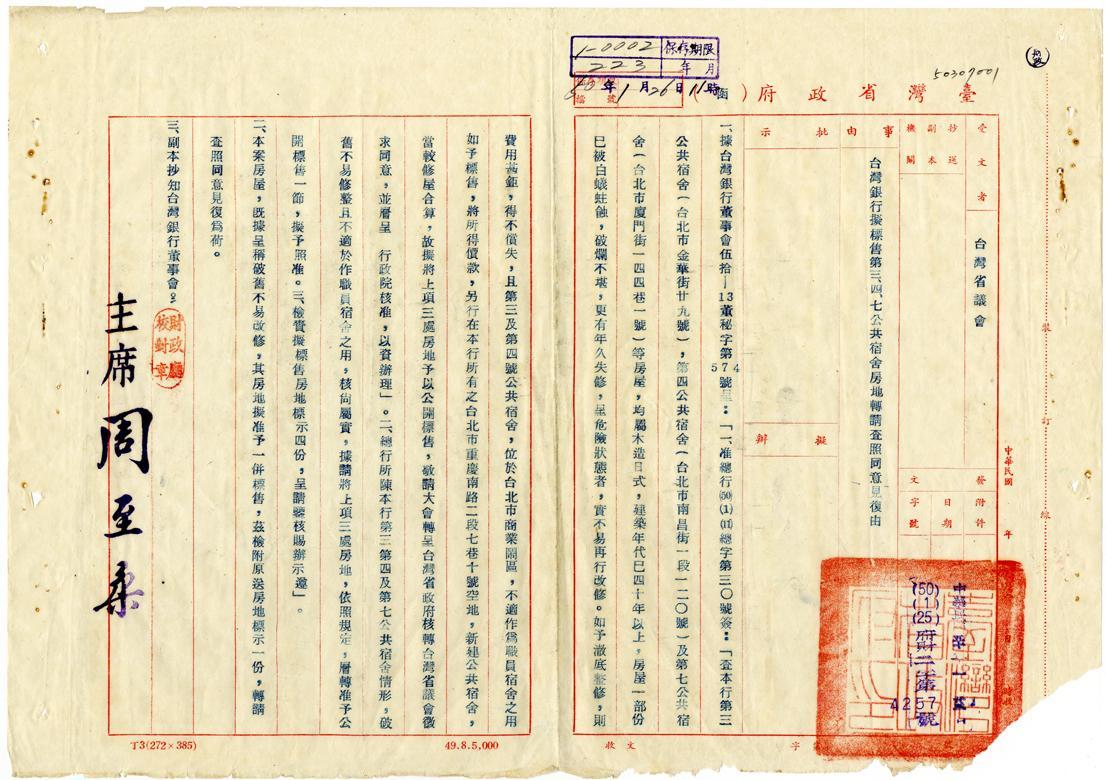 1-0002
保存期限
223
年 月
50 年 1 月 26 日 11 時
50307001
臺灣省政府（函）
受文者
台灣省議會
抄送
副本
機關
發附件
日期
文字號
中華民國 年
裝訂線
事由
台灣銀行擬標售第三、四、七公共宿舍房地轉請查照同意見復由
批示
擬辦
(50)(1)(25)府財二字第
4257號
一、據台灣銀行董事會伍拾－13董秘字第574號呈：「一、准總行(50)(1)(11)總字第三〇號簽：「查本行第三
公共宿舍（台北市金華街廿九號），第四公共宿舍（台北市南昌街一段一二〇號）及第七公共宿
舍（台北市廈門街一四四巷一號）等房屋，均屬木造日式，建築年代已四十年以上，房屋一部份
已被白蟻蛀蝕，破爛不堪，更有年久失修，呈危險狀態者，實不易再行改修。如予澈底整修，則
費用甚鉅，得不償失，且第三及第四號公共宿舍，位於台北市商業鬧區，不適作為職員宿舍之用
如予標售，將所得價款，另行在本行所有之台北市重慶南路二段七巷十號空地，新建公共宿舍，
當較修屋合算，故擬將上項三處房地予以公開標售，敬請大會轉呈台灣省政府核轉台灣省議會徵
求同意，並層呈 行政院核准，以資辦理」。二、總行所陳本行第三第四及第七公共宿舍情形，破
舊不易修整且不適於作職員宿舍之用，核尚屬實，據請將上項三處房地，依照規定，層轉准予公
開標售一節，擬予照准。三、檢賚擬標售房地標示四份，呈請鑒核賜辦示遵」。
二、本案房屋，既據呈稱破舊不易改修，其房地擬准予一併標售，茲檢附原送房地標示一份，轉請
查照同意見復為荷。
三、副本抄知台灣銀行董事會。
財政廳
校對章
主席 周至柔
T3(272×385)
49.8.5,000
收文
字